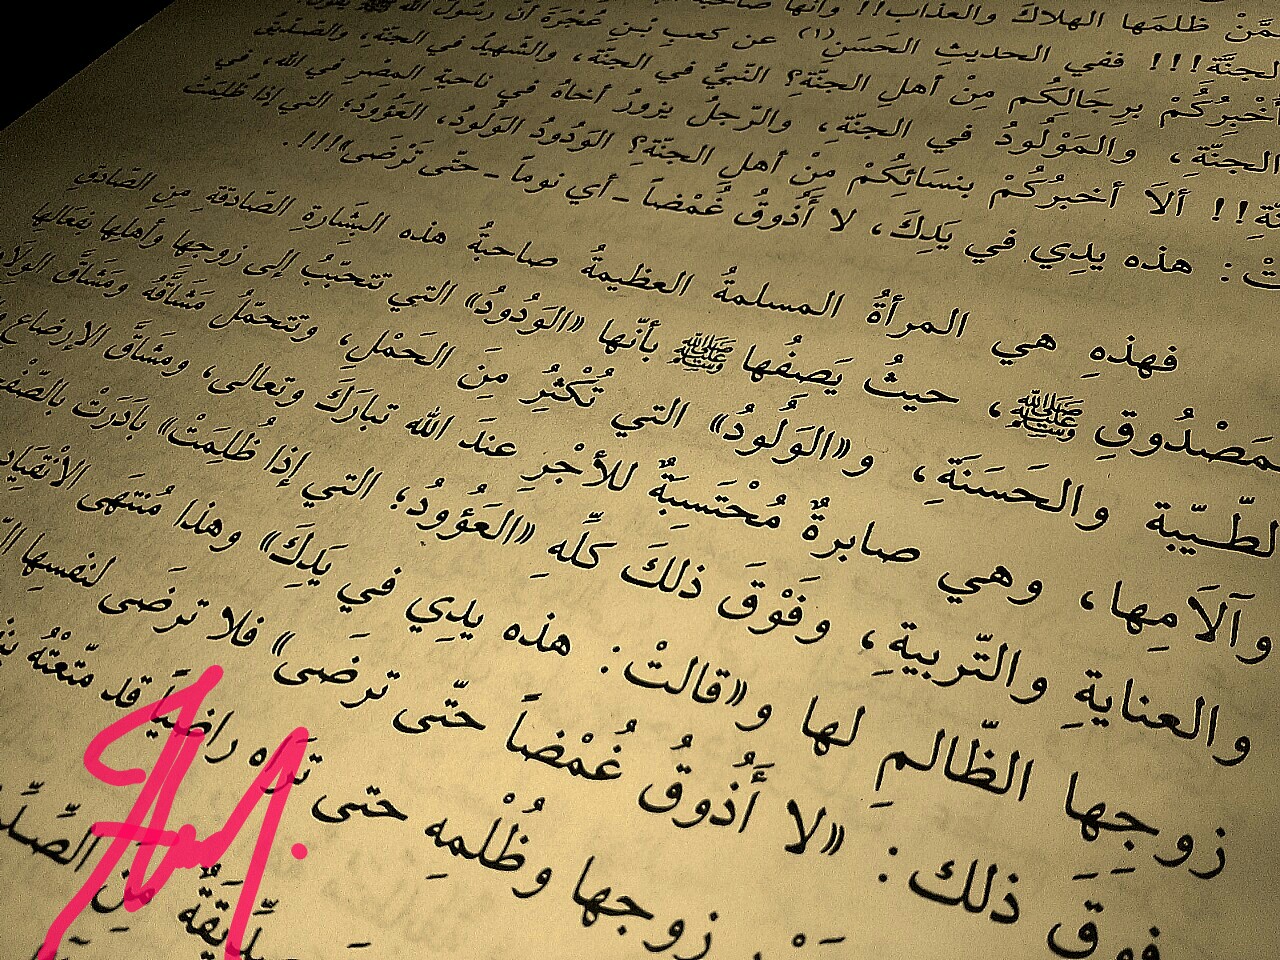 مَّنْ ظلمَها الهلاكَ والعذابَ!! وأنها
الجنَّةِ!!! ففي الحديثِ الحَسَنِ (١) عن كعبِ بْنِ عُجْرَةَ أنّ رسُولَ الله ﷺ
أُخْبِرُكُمْ بِرِجَالِكُم مِنْ أهلِ الجنّةِ؟ النّبيُّ في الجنّةِ، والشّهيدُ في الجنّةِ، والصّدّيقُ
الجنّةِ، والمَوْلُودُ في الجنّةِ، والرّجلُ يزورُ أخاهُ في ناحيةِ المِصْرِ في الله، في
!! ألاَ أخبرُكُمْ بنسَائِكُمْ مِنْ أهلِ الجنّةِ؟ الوَدُودُ الوَلُودُ، العَؤُودُ، التي إذا ظُلِمَتْ
تْ: هذه يدِي في يَدِكَ، لا أَذُوقُ غُمْضاً ـ أي نوماً ـ حتّى تَرْضَى»!!!.
فهذهِ هي المرأةُ المسلمةُ العظيمةُ صاحبةُ هذه البشَارةِ الصّادقةِ مِنِ الصّادقِ
مَصْدُوقِ ﷺ، حيثُ يَصِفُها ﷺ بأنّها «الوَدُودُ» التي تتحبّبُ إلى زوجِها وأهلِها بفعَالِها
لطّيّبة والحَسَنَةِ، و«الوَلُودُ» التي تُكْثِرُ مِنَ الحَمْلِ، وتتحمّلُ مَشَاقَّهُ ومَشَاقَّ
وآلاَمِها، وهي صابرةٌ مُحْتَسِبةٌ للأجْرِ عندَ الله تبارَكَ وتعالى، ومشاقَّ الإرضاعِ
والعنايةِ والتّربيةِ، وفَوْقَ ذلكَ كلِّه «العَؤودُ؛ التي إذا ظُلِمَتْ» بادَرَتْ
زوجِها الظّالمِ لها و«قالتْ: هذه يدِي في يَدِكَ» وهذا مُنتَهَى الانْقيَادِ
فوقَ ذلك: «لا أَذُوقُ غُمْضاً حتّى ترْضَى» فلا ترضَى لنفسِها
زوجها وظُلْمِه حتى تَرَاه راضياً قد متّعتْهُ
دِّيقَةٌ مِنَ